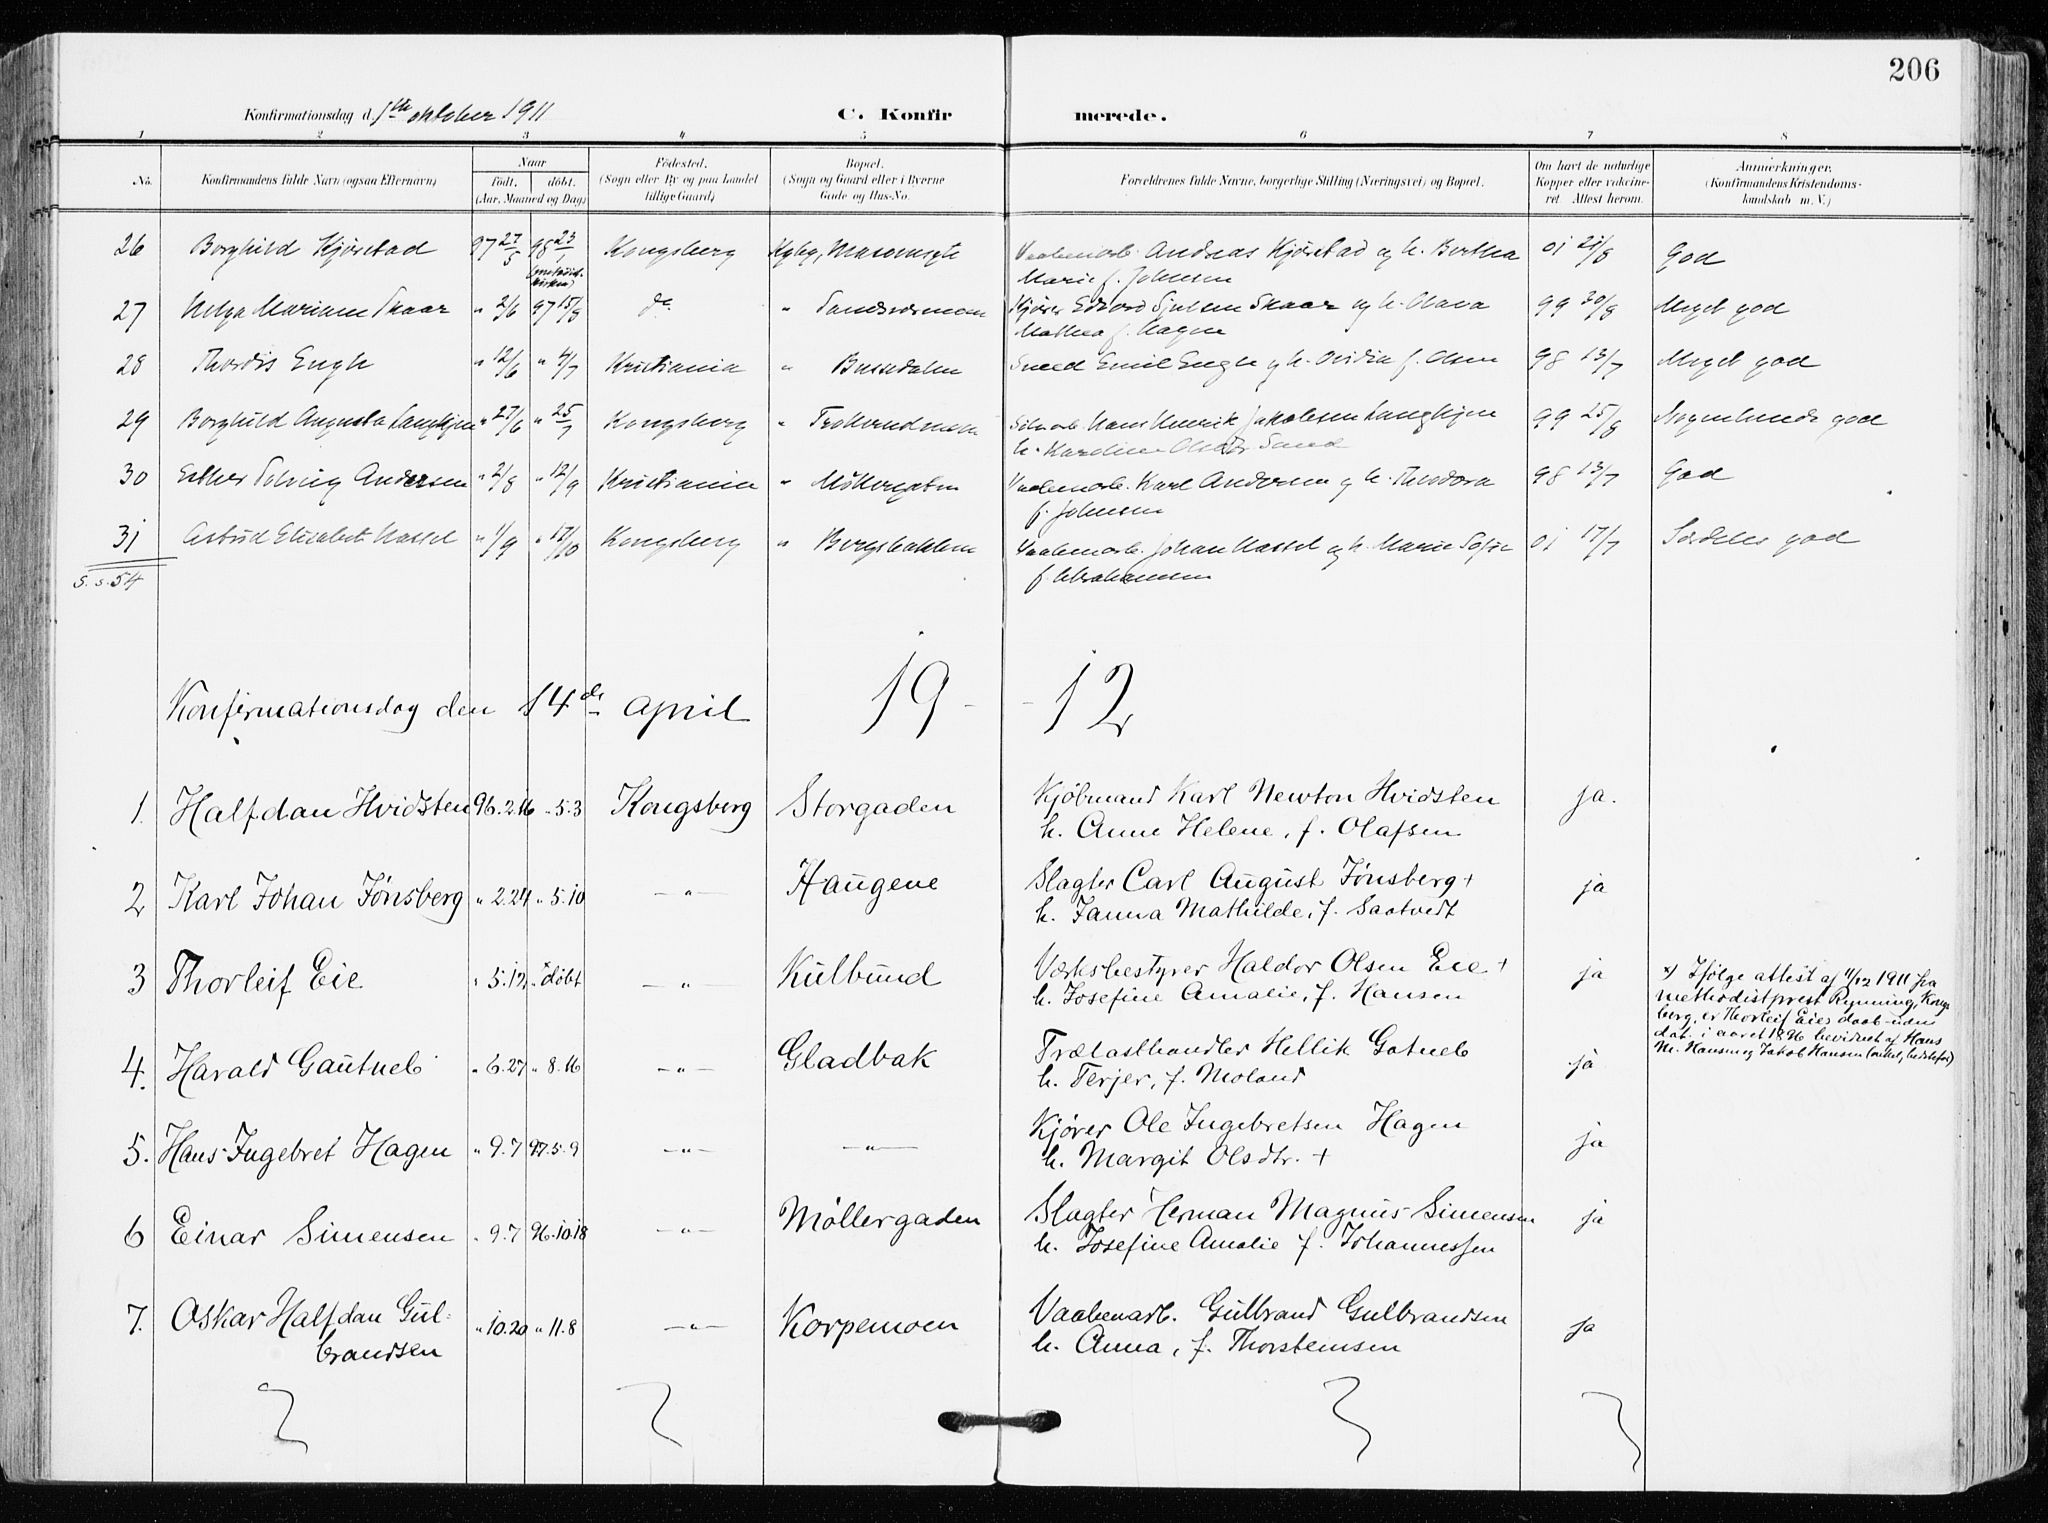 206
Konfirmationsdag d. 1ste oktober 1911 C. Konfir merede.
1 2 3 4 5 6 7 8
No. Konfirmandens fulde Navn (ogsaa Efternavn) Naar født. døbt. (Aar, Maaned og Dag) Fødested. (Sogn eller By og paa Landet tillige Gaard) Bopæl. (Sogn og Gaard eller i Byerne Gade og Hus-No. Forældrenes fulde Navne, borgerlige Stilling (Næringsvei) og Bopæl. Om havt de naturlige Kopper eller vakcineret. Attest herom. Anmerkninger. (Konfirmandens Kristendomskundskab m. V.)
26 Borghild Kjørstad 97 27/5 98 23/1 Kongsberg Kgbg, Vaabenarb. Andreas Kjørstad og h. Berthea 01 21/8 God
Marie f. Johnsen
27 Helga Mariane Skaar " 2/6 97 15/8 do " Sandsværmoen Kjører Edvard Syversen Skaar og h. Olava 99 30/8 Meget god
Mathea f. Hagen
28 Thordis Engh " 12/6 " 4/7 Kristiania " Bussedalen Smed Emil Engh og h. Ovidia f. Olsen 98 13/7 Meget god
29 Borghild Augusta Langkjen " 27/6 " 25/7 Kongsberg " Sølvarb. Hans Henrik Jakobsen Langkjen 99 25/8 Nogenlunde god
h. Karoline Olsdtr Sand
30 Esther Solveig Andersen " 2/8 " 12/9 Kristiania " Møllergaten Vaabenarb. Karl Andersen og h. Theodora 98 13/7 God
f. Johnsen
31 Astrid Elisabeth Hassel " 1/9 " 17/10 Kongsberg " Bergsbakken Vaabenarb. Johan Hassel og h. Marie Sofie 01 17/7 Særdeles god
f. Abrahamsen
S. s. 54
Konfirmationsdag den 14de April 19 - - 12
1. Halfdan Hvidsten 96.2.16 " 5.3 Kongsberg Storgaden Kjøbmand Karl Newton Hvidsten ja.
h. Anne Helene, f. Olafsen
2 Karl Johan Jønsberg " 2.24 " 5.10 —"— Haugene Slagter Carl August Jønsberg + ja
h. Janna Mathilde, f. Saatvedt
3 Thorleif Eie " 5.12 " x døbt —"— Kulbund Værksbestyrer Haldor Olsen Eie + ja
h. Josefine Amalie, f. Hansen
x) Ifølge attest af 11/12 1911 fra
methodistprest Rynning, Kongs
berg, er Thorleif Eies daab uden
dat. i aaret 1896 bevidnet af Hans
M. Hansen og Jakob Hansen (onkel, bedstefar)
4. Harald Gautneb " 6.27 " 8.16 —"— Gladbak Trælasthandler Hellik Gotneb ja
h. Terjer, f. Moland
5. Hans Ingebret Hagen " 9.7 97.5.9 —"— —"— Kjører Ole Ingebretsen Hagen ja
h. Margit Olsdtr. +
6 Einar Simensen " 9.7 96.10.18 —"— Møllergaden Slagter Herman Magnus Simensen ja
h. Josefine Amalie f. Johannessen
7. Oskar Halfdan Gul- " 10.20 " 11.8 —"— Korpemoen Vaabenarb. Gulbrand Gulbrandsen ja
brandsen h. Anna, f. Thorstensen